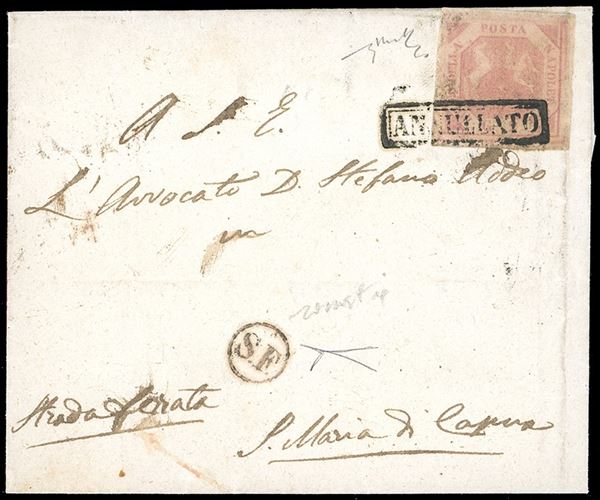 POSTA
NAPOLE
ANNULLATO
A S. E.
L'Avvocato D. Stefano
in
S.F
Strada ferata
S. Maria di Capua